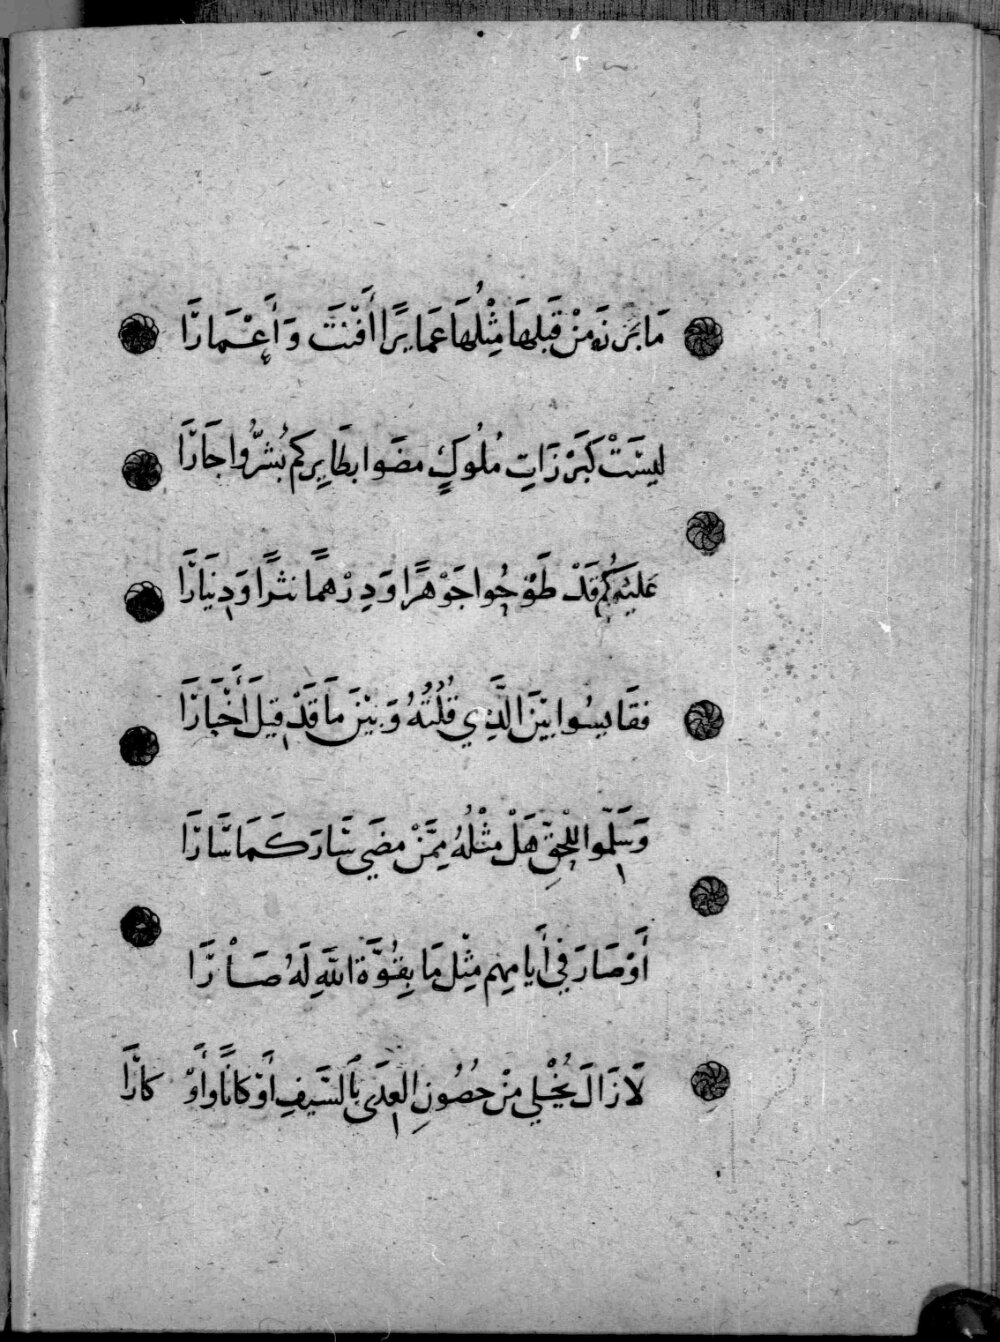 مَا بَرَزَتْ مِنْ قَبْلِهَا مِثْلُهَا عَمَايِرًا أَفْنَتَ وَأَعْمَارًا
لَيسَتْ كَبَرْزَاتِ مُلُوكٍ مَضَوا بطَايِرِكم بُشِّرُوا جَارًا
عَليْكُم قَدْ طَوَّحُوا جَوْهَرًا وَدِرْهَمًا نَثرًا وَدِينَارًا
فقَايسُوا بَيْنَ الَّذِي قُلْتُهُ وَبَيْنَ مَا قَدْ قِيلَ أَخْبَارًا
وَسَلِّموا لِلْحَقِّ هَلْ مِثْلُهُ مِمَّنْ مضَى سَارَ كَمَا سَارَا
أَوْ صَارَ في أَيامِهِم مِثْل مَا بِقُوَّةِ اللَّهِ لَهُ صَارَا
لَا زَالَ يُخْلِي مِنْ حُصُونِ العِدَى بِالسَّيفِ أَوْكَانًا وَأَوْكَارًا